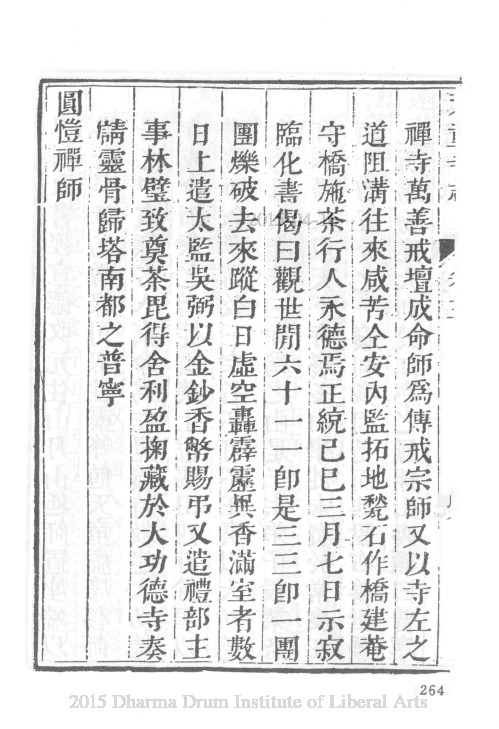 禪寺萬善戒壇成命師爲傳戒宗師又以寺左之
道阻溝往來咸苦仝安內監拓地甃石作橋建菴
守橋施茶行人永德焉正統己巳三月七日示寂
臨化書偈曰觀世間六十一一卽是三三卽一團
團爍破去來蹤白日虛空轟霹靂異香滿室者數
日上遣太監吳弼以金鈔香幣賜弔又遣禮部主
事林璧致奠茶毘得舍利盈掬藏於大功德寺奏
請靈骨歸塔南都之普寧
圓愷禪師
264
2015 Dharma Drum Institute of Liberal Arts